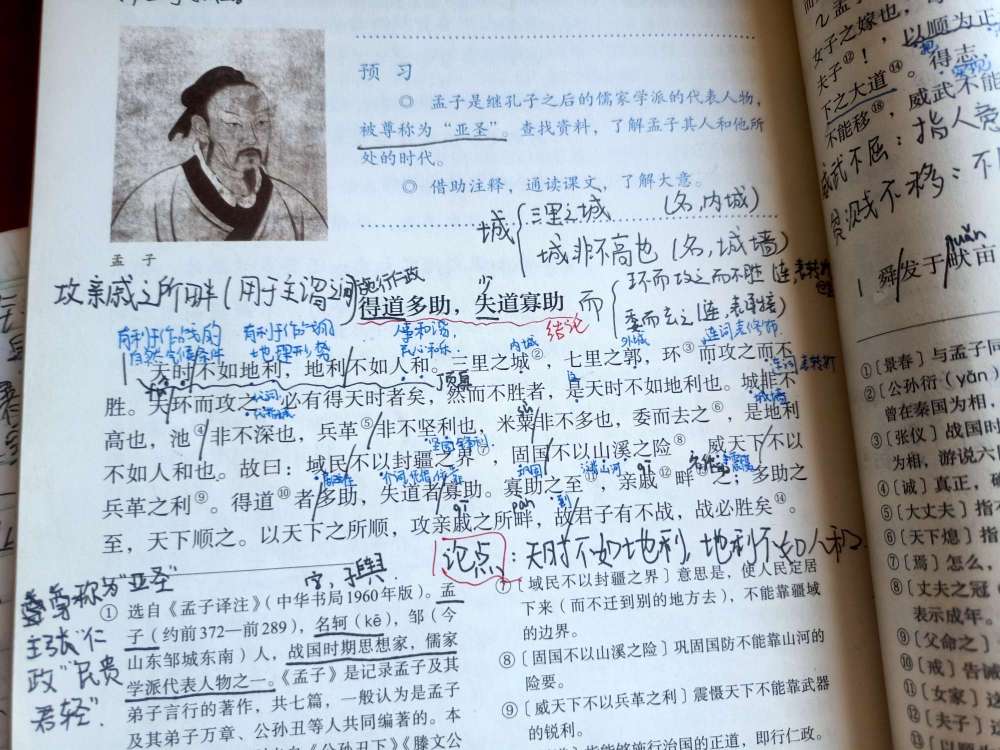 预习
◎ 孟子是继孔子之后的儒家学派的代表人物，
被尊称为“亚圣”。查找资料，了解孟子其人和他所
处的时代。
◎ 借助注释，通读课文，了解大意。
孟子
城
三里之城 （名，内城）
城非不高也（名，城墙）
攻亲戚之所畔（用于主谓之间
施行仁政
得道多助，失道寡助
少
结论
而
环而攻之而不胜
委而去之（连，表承接）
连词表修饰
有利于作战的
自然气候条件
有利于作战的
地理形势
内城
外城
天时不如地利，地利不如人和。三里之城②，七里之郭，环③而攻之而不
顶真
胜。夫环而攻之，必有得天时者矣，然而不胜者，是天时不如地利也。城非不
代词
城墙
高也，池④非不深也，兵革⑤非不坚利也，米粟非不多也，委而去之⑥，是地利
不如人和也。故曰：域民不以封疆之界⑦，固国不以山溪之险⑧，威天下不以
巩固
兵革之利⑨。得道⑩者多助，失道者寡助。寡助之至⑪，亲戚⑫畔⑬之；多助之
qī
pàn
到
至，天下顺之。以天下之所顺，攻亲戚之所畔，故君子有不战，战必胜矣⑭。
论点：天时不如地利，地利不如人和
尊称为“亚圣”
主张“仁
政”“民贵
君轻”.
字，子舆.
① 选自《孟子译注》（中华书局1960年版）。孟
子（约前372—前289），名轲（kē），邹（今
山东邹城东南）人，战国时期思想家，儒家
学派代表人物之一。《孟子》是记录孟子及其
弟子言行的著作，共七篇，一般认为是孟子
及其弟子万章、公孙丑等人共同编著的。本
《公孙丑下》《滕文公
⑦〔域民不以封疆之界〕意思是，使人民定居
下来（而不迁到别的地方去），不能靠疆域
的边界。
⑧〔固国不以山溪之险〕巩固国防不能靠山河的
险要。
⑨〔威天下不以兵革之利〕震慑天下不能靠武器
的锐利。
能够施行治国的正道，即行仁政。
女子之嫁也，
夫子⑫！，以顺为正
下之大道⑭。得志
不能移⑱，威武不能
威武不屈：指人意
贫贱不移：不
quǎn
1 舜发于畎亩
①〔景春〕与孟子同
②〔公孙衍（yǎn）
曾在秦国为相，
③〔张仪〕战国时
为相，游说六
④〔诚〕真正，确
⑤〔大丈夫〕指
⑥〔天下熄〕指
⑦〔焉〕怎么，
⑧〔丈夫之冠
表示成年。
⑨〔父命之〕
⑩〔戒〕告诫
⑪〔女家〕
⑫〔夫子〕